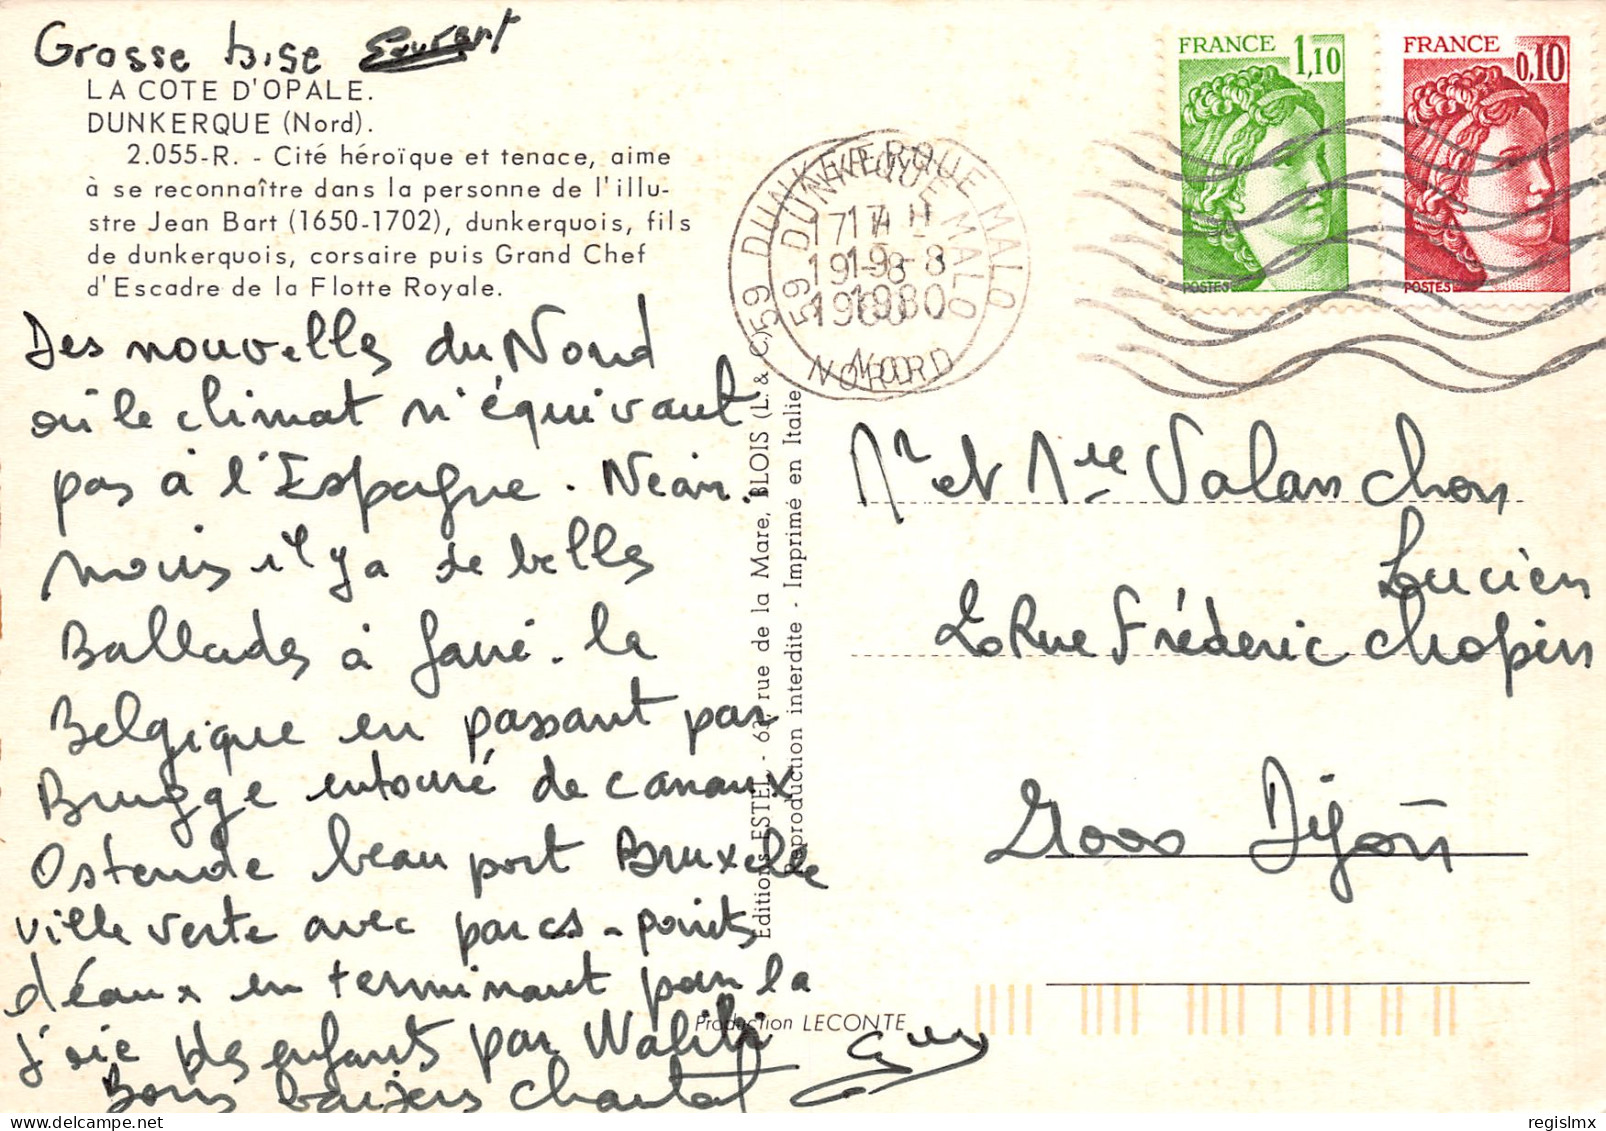 Grosse bise
LA COTE D'OPALE.
DUNKERQUE (Nord).
2.055-R. - Cité héroïque et tenace, aime
à se reconnaître dans la personne de l'illu-
stre Jean Bart (1650-1702), dunkerquois, fils
de dunkerquois, corsaire puis Grand Chef
d'Escadre de la Flotte Royale.
Des nouvelles du Nord
où le climat n'équivaut
pas à l'Espagne. Néan.
moins il y a de belles
Ballades à faire. la
Belgique en passant par
Brugge entouré de canaux
Ostende beau port Bruxelle
ville verte avec parcs - points
d'éaux en terminant par la
joie des enfants par Walibi
Bons baisers Chantal
Guy
Editions ESTEL - 63 rue de la Mare, BLOIS (L. & C.)
Reproduction interdite - Imprimé en Italie
Production LECONTE
59 DUNKERQUE MALO
17 H
19-8
1980
NORD
FRANCE 1,10
POSTES
FRANCE 0,10
POSTES
Mr et Mme Valanchon
Lucien
2 Rue Frédéric Chopin
21000 Dijon
regislmx